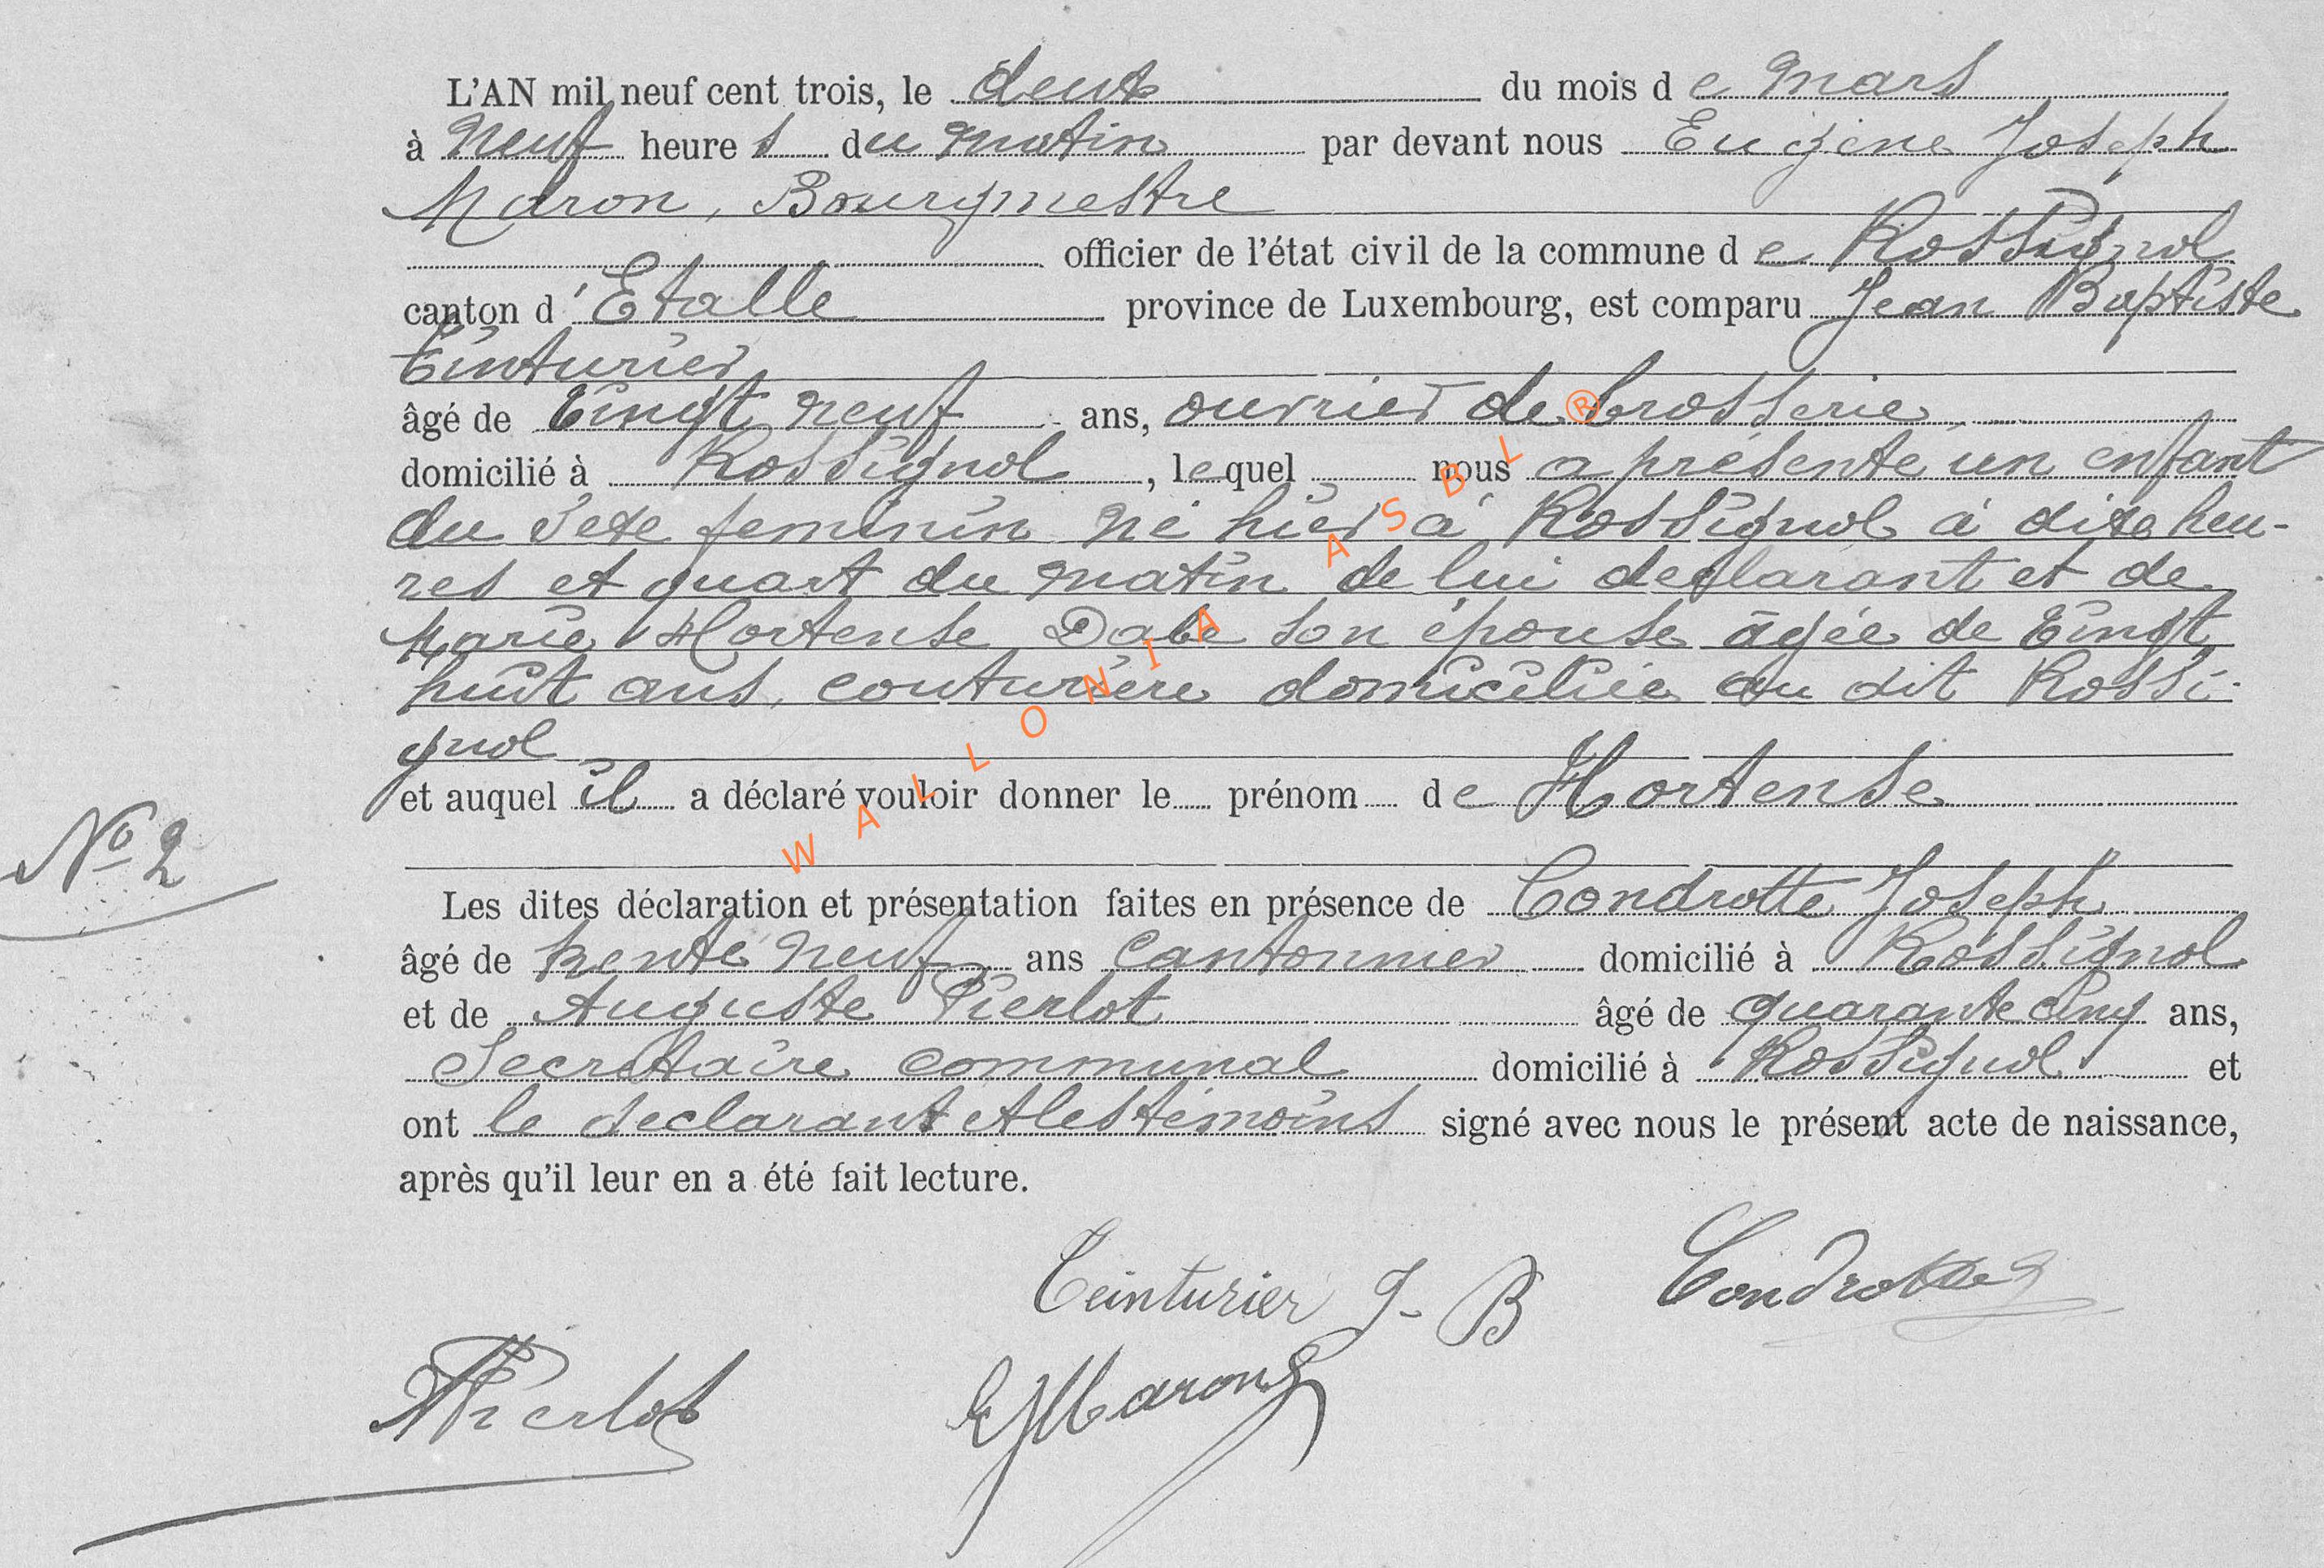 L'AN mil neuf cent trois, le deux du mois de Mars
à Neuf heures du Matin par devant nous Eugène Joseph
Maron, Bourgmestre
officier de l'état civil de la commune de Rossignol
canton d'Etalle province de Luxembourg, est comparu Jean Baptiste
Teinturier
âgé de Vingt neuf ans, ouvrier de brosserie
domicilié à Rossignol, lequel nous a présenté un enfant
du Sexe feminin né hier à Rossignol à dix heu-
res et quart du Matin de lui declarant et de
Marie Hortense son épouse âgée de Vingt
huit ans, couturière domiciliée au dit Rossi-
gnol
et auquel il a déclaré vouloir donner le prénom de Hortense
N° 2
Les dites déclaration et présentation faites en présence de Condrotte Joseph
âgé de trente neuf ans Cantonnier domicilié à Rossignol
et de Auguste Pierlot âgé de quarante cinq ans,
Secretaire communal domicilié à Rossignol et
ont le declarant et les témoins signé avec nous le présent acte de naissance,
après qu'il leur en a été fait lecture.
Teinturier J-B Condrotte
APierlot EJMaron
WALLONIA ASBL ®